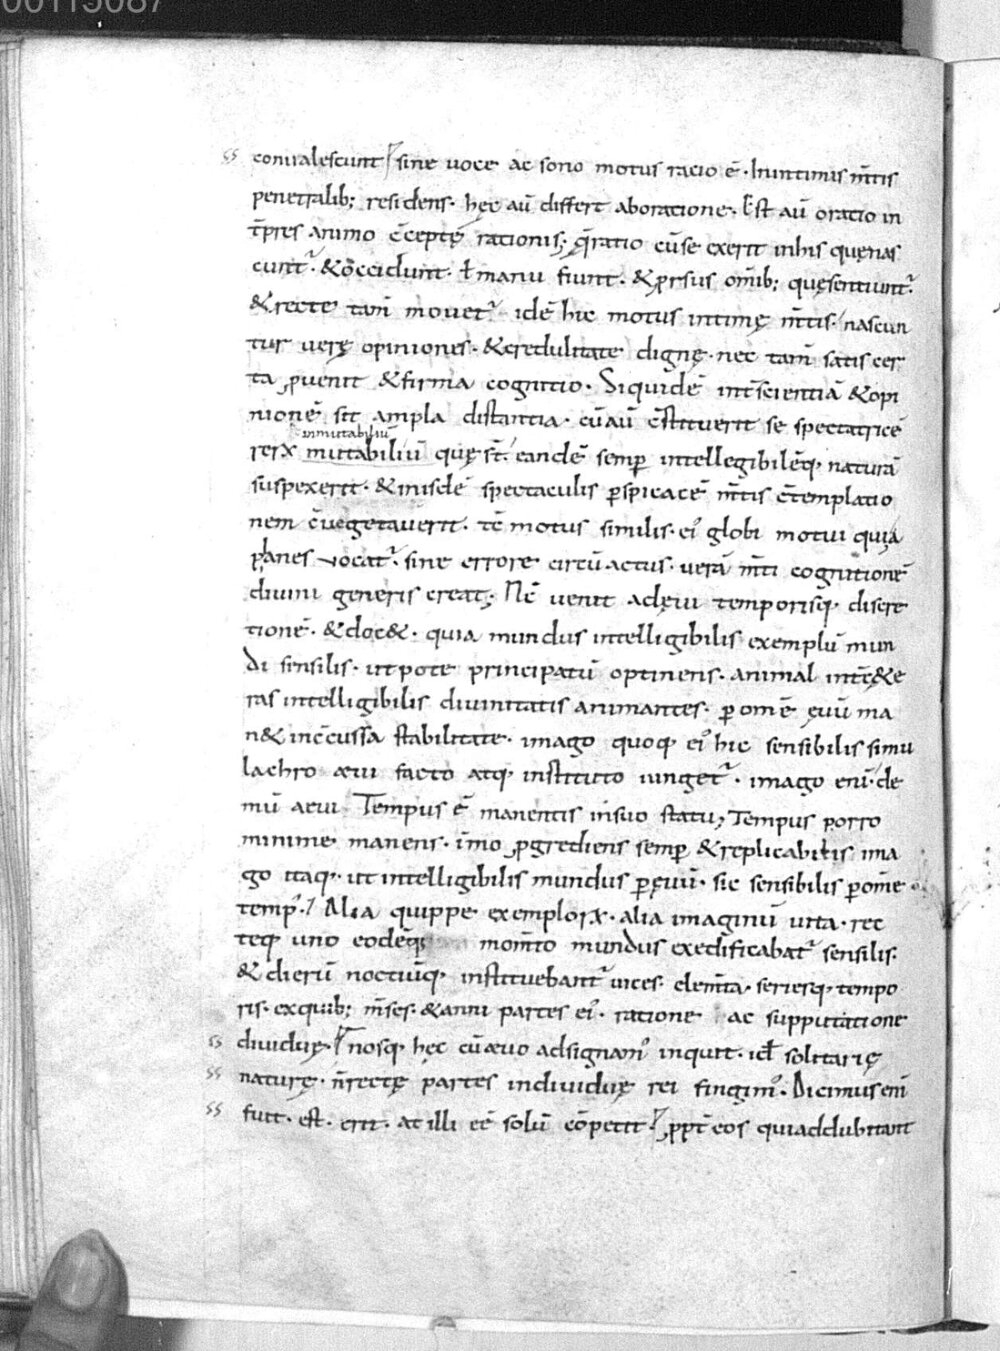 00115087
ss conualescunt sine uoce ac sono motus racio ē · In intimis m̄tis
penetralib; residens · hęc aū differt aboracione · Est aū oratio in
t̄pres animo c̄ceptę rationis; q̄ratio cū se exerit inhis quęnas
cunt᷑ · &occidunt · ł manu fiunt · &prsus om̄ib; quęsentiunt᷑
&recte tam̄ mouet᷑ idē hic motus intimę m̄tis · nascun
tur uerę opiniones · &credulitate dignę · nec tam̄ satis cer
ta ꝓuenit &firma cognitio · Siquidē int̄ scientiā &opi
nionē sit ampla distantia · cū aū c̄stituerit se spectatricē
inmutabiliū
rerꝝ mutabiliū quę st̄ · eandē semꝑ intellegibilēq· naturā
suspexerit · &inisdē spectaculis ꝑspicacē m̄tis c̄templatio
nem c̄uegetauerit · tc̄ motus similis · ei᷒ globi motui quia
planes uocat᷑ · sine errore circū actus · uerā m̄ti cognitionē
diuini generis creat; Nc̄ uenit adęui temporisq· discre
tionē · &doc& · quia mundus intelligibilis exemplū mun
di sensilis · utpote principatū optinens · animal int̄ c&e
ras intelligibilis diuinitatis animantes · ꝑ omē ęuū ma
n& inc̄cussa stabilitate · imago quoq· ei᷒ hic sensibilis simu
lachro aeui facto atq· instituto iunget᷑ · imago eni · de
mū aeui Tempus ē manentis insuo statu; Tempus porro
minime manens · immo ꝓgrediens semꝑ &replicabilis ima
go itaq· ut intelligibilis mundus ꝑ ęuū · sic sensibilis ꝑ om̄e
temp᷒ · Alia quippe exemplorꝝ · alia imaginū uita · rec
teq· uno eodēq· mom̄to mundus exedificabat᷑ sensilis ·
& dierū noctiūq· instituebant᷑ uices · elem̄ta · seriesq· tempo
ris · exquib; m̄ses · &anni partes ei᷒ · ratione ac supputatione
ss diuiduę · nosq· hęc cū aeuo adsignam᷒ inquit · id ē solitarię
ss naturę · n̄ rectę partes indiuiduę rei fingim᷒ · Dicimus eni
ss fuit · est · erit · at illi eē solū cōpetit ꝓpt̄ eos quiaddubitant